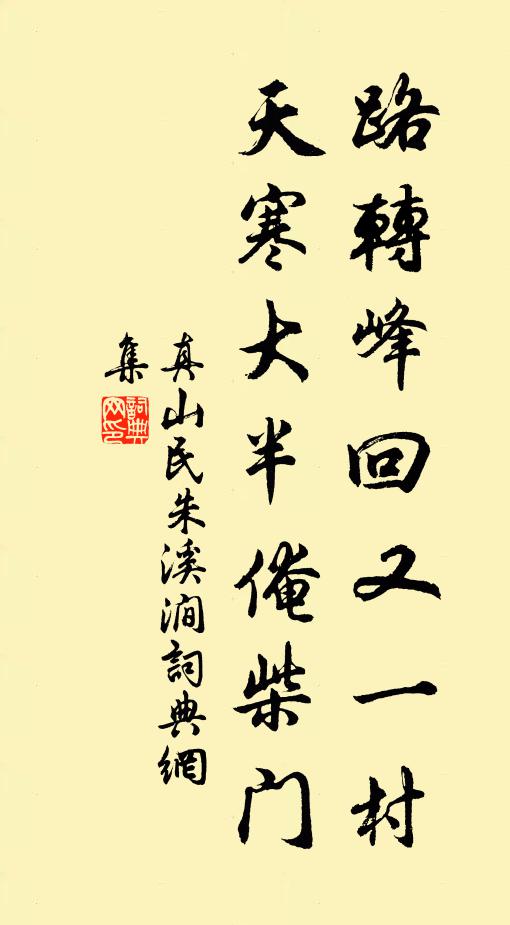 路轉峰回又一村
天寒大半俺柴門
真山民朱溪澗詞典網
集
詞典
网印